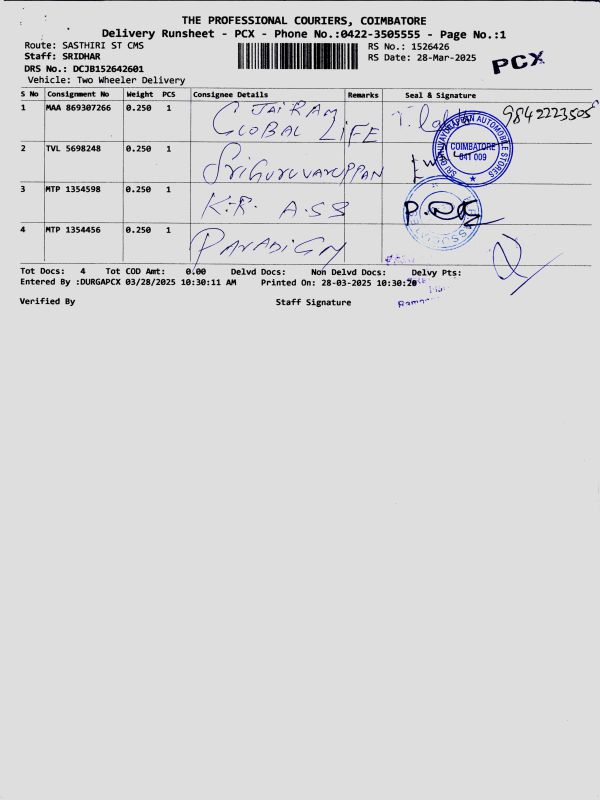 THE PROFESSIONAL COURIERS, COIMBATORE
Delivery Runsheet - PCX - Phone No.:0422-3505555 - Page No.:1
Route: SASTHIRI ST CMS
RS No.: 1526426
Staff: SRIDHAR
RS Date: 28-Mar-2025
PCX
DRS No.: DCJB152642601
Vehicle: Two Wheeler Delivery
S No Consignment No Weight PCS Consignee Details Remarks Seal & Signature
1 MAA 869307266 0.250 1 C JAIRAM 9842223505
GLOBAL LIFE
2 TVL 5698248 0.250 1 SRIGURUVAYUPPAN
COIMBATORE
641 009
3 MTP 1354598 0.250 1 K.R. ASS
4 MTP 1354456 0.250 1 PARADIGM
Tot Docs: 4 Tot COD Amt: 0.00 Delvd Docs: Non Delvd Docs: Delvy Pts:
Entered By :DURGAPCX 03/28/2025 10:30:11 AM Printed On: 28-03-2025 10:30:20
Verified By Staff Signature